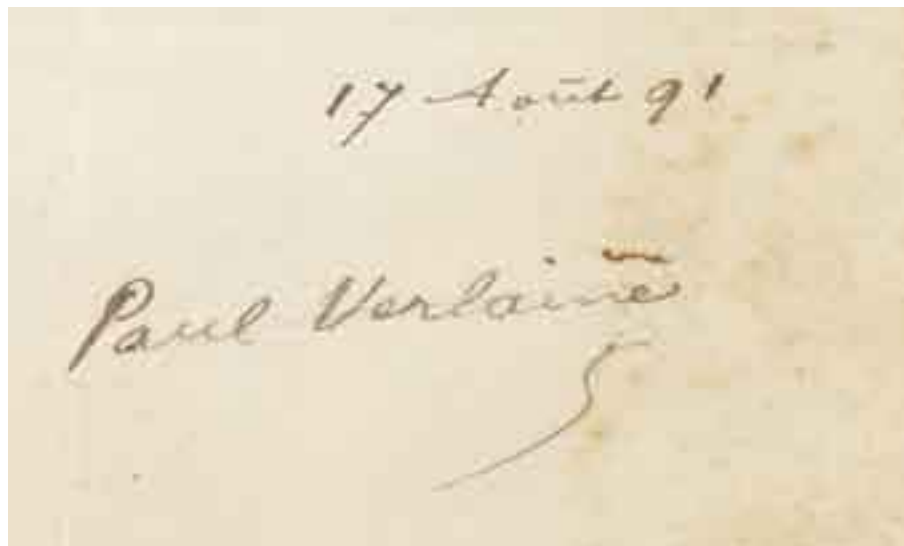 17 Août 91
Paul Verlaine